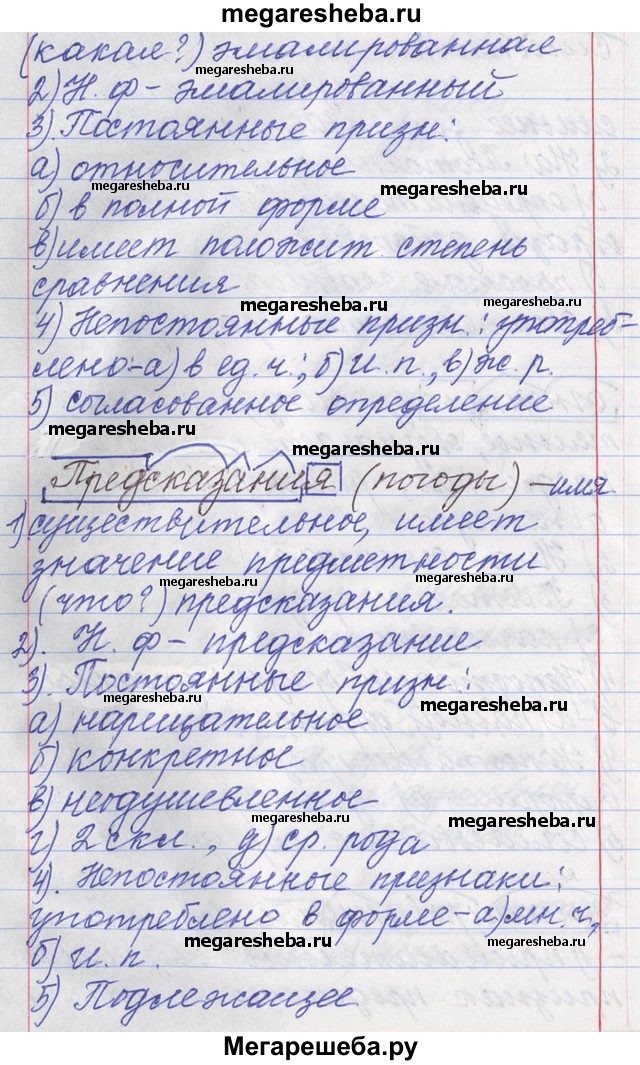 megaresheba.ru
(какая?) эмалированная
megaresheba.ru
2) Н. ф - эмалированный
megaresheba.ru
3). Постоянные призн:
а) относительное
megaresheba.ru
megaresheba.ru
б) в полной форме
в) имеет положит. степень
сравнения
megaresheba.ru
megaresheba.ru
4) Непостоянные призн.: употреб-
лено-а) в ед. ч.; б) И. п., в) ж. р.
5) согласованное определение
megaresheba.ru
megaresheba.ru
Предсказания (погоды) - имя
1) существительное, имеет
значение предметности
megaresheba.ru
megaresheba.ru
(что?) предсказания.
2). Н. ф - предсказание
3). Постоянные призн:
megaresheba.ru
megaresheba.ru
а) нарицательное
б) конкретное
в) неодушевленное
megaresheba.ru
г) 2 скл., д) ср. рода
4). Непостоянные признаки:
употреблено в форме - а) мн. ч,
megaresheba.ru
megaresheba.ru
б) И. п.
5) Подлежащее
Мегарешеба.ру